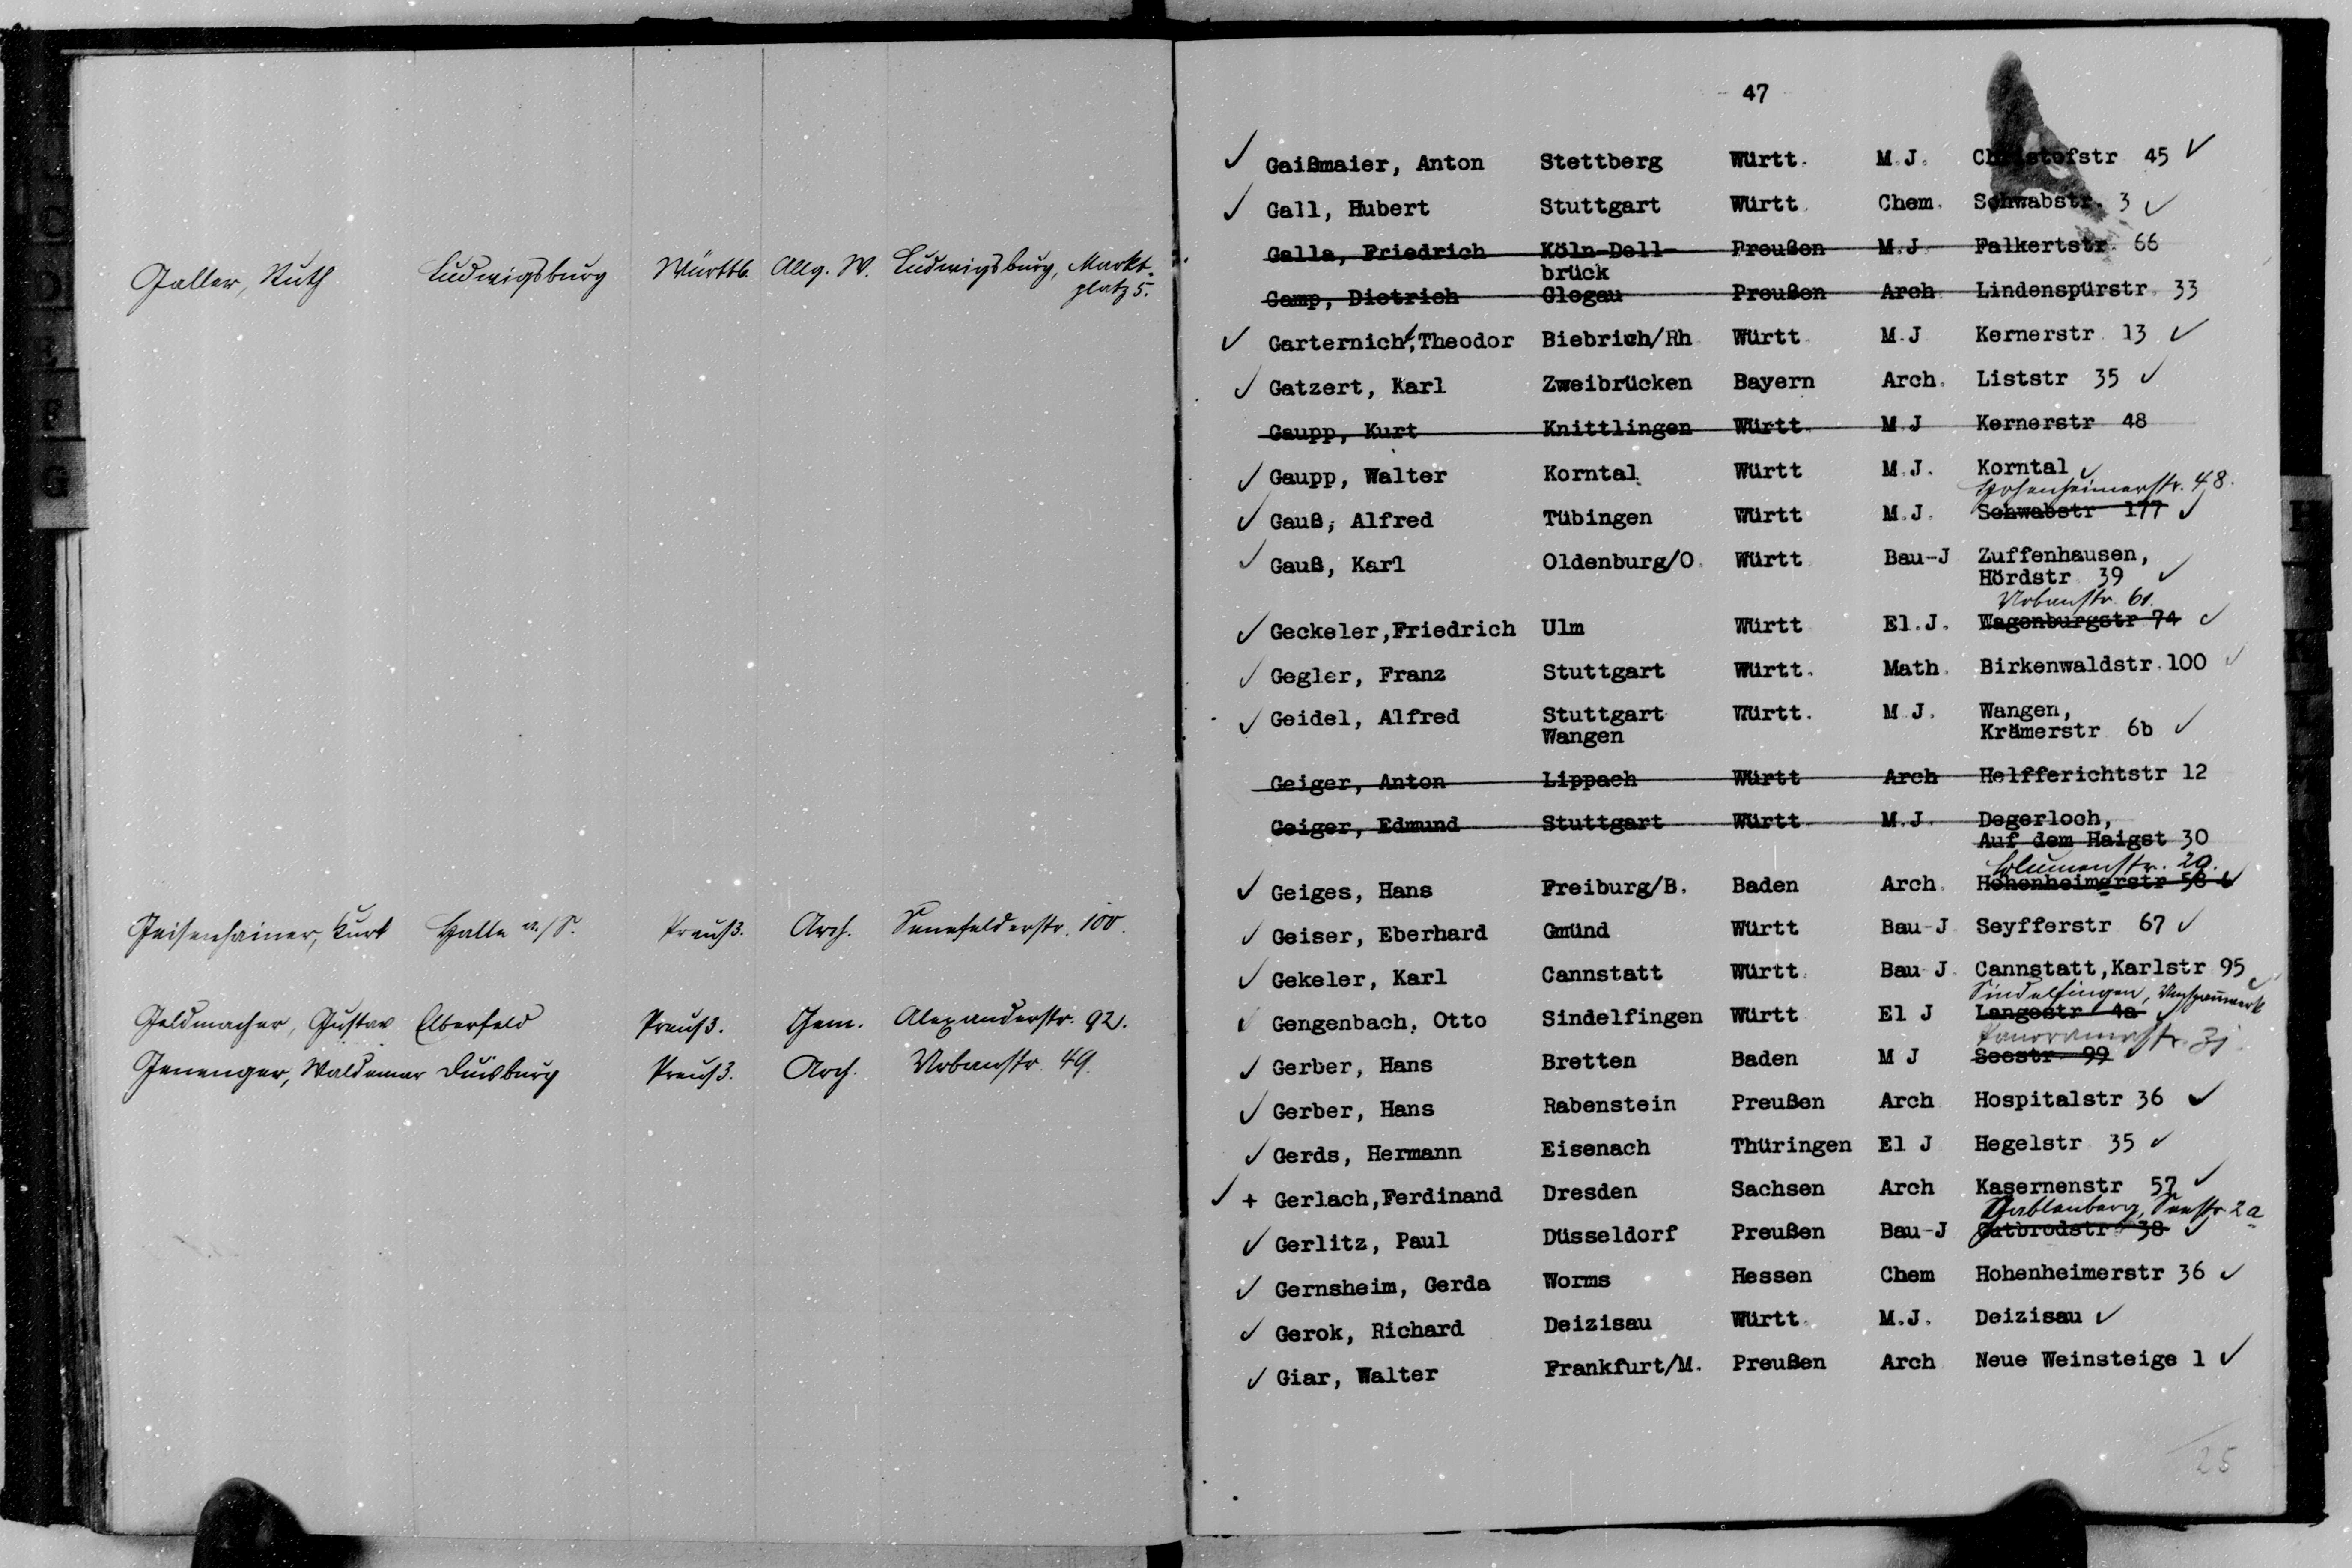 Galler, Ruth Ludwigsburg Württb. Allg. W. Ludwigsburg, Markt-
platz 5.
Geisenhainer, Kurt Halle a./S. Preuß. Arch. Senefelderstr. 100.
Geldmacher, Gustav Elberfeld Preuß. Chem. Alexanderstr. 92.
Genenger, Waldemar Duisburg Preuß. Arch. Urbanstr. 49.
47
✓ Gaißmaier, Anton Stettberg Württ. M.J. Christofstr 45 ✓
✓ Gall, Hubert Stuttgart Württ Chem. Schwabstr. 3 ✓
Galla, Friedrich Köln-Dell- Preußen M.J Falkertstr. 66
brück
Gamp, Dietrich Glogau Preußen Arch Lindenspürstr. 33
✓ Garternicht, Theodor Biebrich/Rh Württ. M.J Kernerstr. 13 ✓
✓ Gatzert, Karl Zweibrücken Bayern Arch. Liststr 35 ✓
Gaupp, Kurt Knittlingen Württ. M J Kernerstr 48
✓ Gaupp, Walter Korntal Württ M.J. Korntal ✓
Hohenheimerstr. 48.
✓ Gauß, Alfred Tübingen Württ M.J. Schwabstr 177 ✓
✓ Gauß, Karl Oldenburg/O. Württ Bau-J Zuffenhausen,
Hördstr 39 ✓
Urbanstr. 61.
✓ Geckeler, Friedrich Ulm Württ El.J. Wagenburgstr 74 ✓
✓ Gegler, Franz Stuttgart Württ. Math. Birkenwaldstr. 100 ✓
✓ Geidel, Alfred Stuttgart Württ. M J. Wangen,
Wangen Krämerstr 6b ✓
Geiger, Anton Lippach Württ Arch Helfferichtstr 12
Geiger, Edmund Stuttgart Württ. M.J. Degerloch,
Auf dem Haigst 30
Blumenstr. 20.
✓ Geiges, Hans Freiburg/B. Baden Arch. Hohenheimerstr 58 ✓
✓ Geiser, Eberhard Gmünd Württ Bau-J Seyfferstr 67 ✓
✓ Gekeler, Karl Cannstatt Württ. Bau J. Cannstatt, Karlstr 95 ✓
Sindelfingen,
✓ Gengenbach, Otto Sindelfingen Württ El J Langestr 4a ✓
Panoramastr. 31.
✓ Gerber, Hans Bretten Baden M J Seestr 99 ✓
✓ Gerber, Hans Rabenstein Preußen Arch Hospitalstr 36 ✓
✓ Gerds, Hermann Eisenach Thüringen El J Hegelstr 35 ✓
✓ + Gerlach, Ferdinand Dresden Sachsen Arch Kasernenstr 57 ✓
Gablenberg, Seestr 2a
✓ Gerlitz, Paul Düsseldorf Preußen Bau-J Gutbrodstr 38 ✓
✓ Gernsheim, Gerda Worms Hessen Chem Hohenheimerstr 36 ✓
✓ Gerok, Richard Deizisau Württ. M.J. Deizisau ✓
✓ Giar, Walter Frankfurt/M. Preußen Arch Neue Weinsteige 1 ✓
25